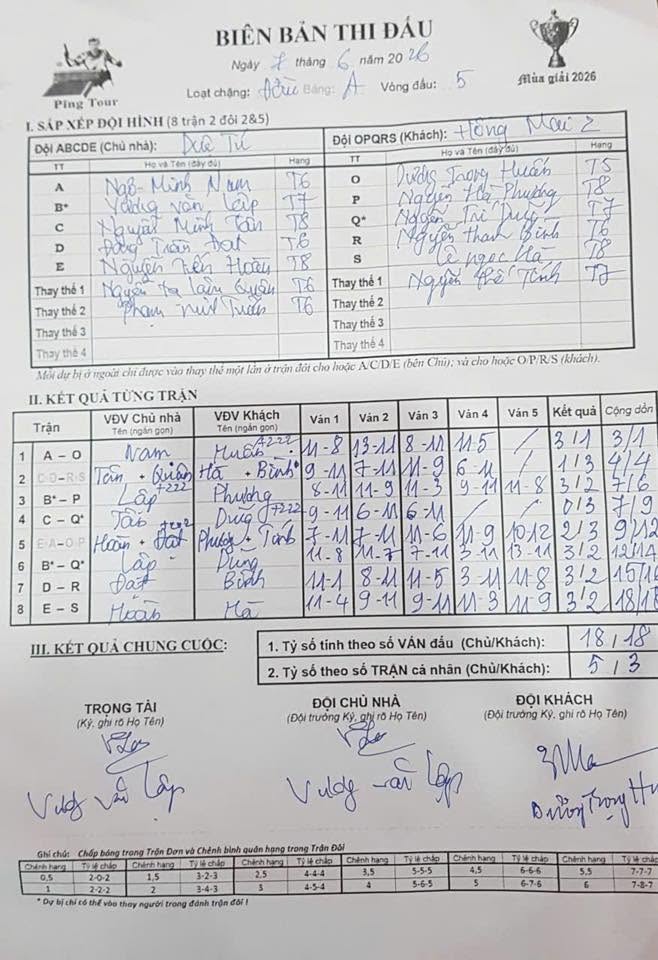 BIÊN BẢN THI ĐẤU
Ngày 7 tháng 6 năm 2026
Ping Tour
Loại chặng: Bảng: A Vòng đấu: 5
Mùa giải 2026
I. SẮP XẾP ĐỘI HÌNH (8 trận 2 đôi 2&5)
Đội ABCDE (Chủ nhà): Tú Đội OPQRS (Khách): Hồng Mai 2
TT Họ và Tên (đầy đủ) Hạng TT Họ và Tên (đầy đủ) Hạng
A Ngô Minh Nam T6 O Dương Trọng Huấn T5
B* Vương Văn Lập T7 P Nguyễn Hà Phương T8
C Nguyễn Minh Tân T8 Q* Nguyễn Trí Dũng T7
D Trần Đạt T6 R Nguyễn Thanh Bình T6
E Nguyễn Tiến Hoàn T8 S Lê Ngọc Hà T8
Thay thế 1 Nguyễn Quân T6 Thay thế 1 Nguyễn Thế Tính T7
Thay thế 2 Phạm Tuấn T6 Thay thế 2
Thay thế 3 Thay thế 3
Thay thế 4 Thay thế 4
Mỗi dự bị ở ngoài chỉ được vào thay thế một lần ở trận đôi cho hoặc A/C/D/E (bên Chủ); và cho hoặc O/P/R/S (khách).
II. KẾT QUẢ TỪNG TRẬN
Trận VĐV Chủ nhà Tên (ngắn gọn) VĐV Khách Tên (ngắn gọn) Ván 1 Ván 2 Ván 3 Ván 4 Ván 5 Kết quả Cộng dồn
1 A – O Nam Huấn +222 11-8 13-11 8-11 11-5 / 3/1 3/1
2 C-D – R-S Tân + Quân Hà + Bình 9-11 7-11 11-9 6-11 / 1/3 4/4
3 B* – P Lập +222 Phương 8-11 11-9 11-3 9-11 11-8 3/2 7/6
4 C – Q* Tân Dũng +222 9-11 6-11 6-11 / / 0/3 7/9
5 E-A – O-P Hoàn + Đạt +202 Phương + Tính 7-11 7-11 11-6 11-9 10-12 2/3 9/12
6 B* – Q* Lập Dũng 11-8 11-7 7-11 3-11 13-11 3/2 12/14
7 D – R Đạt Bình 11-1 8-11 11-5 3-11 11-8 3/2 15/16
8 E – S Hoàn Hà 11-4 9-11 9-11 11-3 11-9 3/2 18/18
III. KẾT QUẢ CHUNG CUỘC:
1. Tỷ số tính theo số VÁN đấu (Chủ/Khách): 18/18
2. Tỷ số theo số TRẬN cá nhân (Chủ/Khách): 5/3
TRỌNG TÀI ĐỘI CHỦ NHÀ ĐỘI KHÁCH
(Ký, ghi rõ Họ Tên) (Đội trưởng Ký, ghi rõ Họ Tên) (Đội trưởng Ký, ghi rõ Họ Tên)
Vương Văn Lập Vương Văn Lập Dương Trọng
Ghi chú: Chấp bóng trong Trận Đơn và Chênh bình quân hạng trong Trận Đôi
Chênh hạng Tỷ lệ chấp Chênh hạng Tỷ lệ chấp Chênh hạng Tỷ lệ chấp Chênh hạng Tỷ lệ chấp Chênh hạng Tỷ lệ chấp Chênh hạng Tỷ lệ chấp
0,5 2-0-2 1,5 3-2-3 2,5 4-4-4 3,5 5-5-5 4,5 6-6-6 5,5 7-7-7
1 2-2-2 2 3-4-3 3 4-5-4 4 5-6-5 5 6-7-6 6 7-8-7
* Dự bị chỉ có thể vào thay người trong đánh trận đôi !